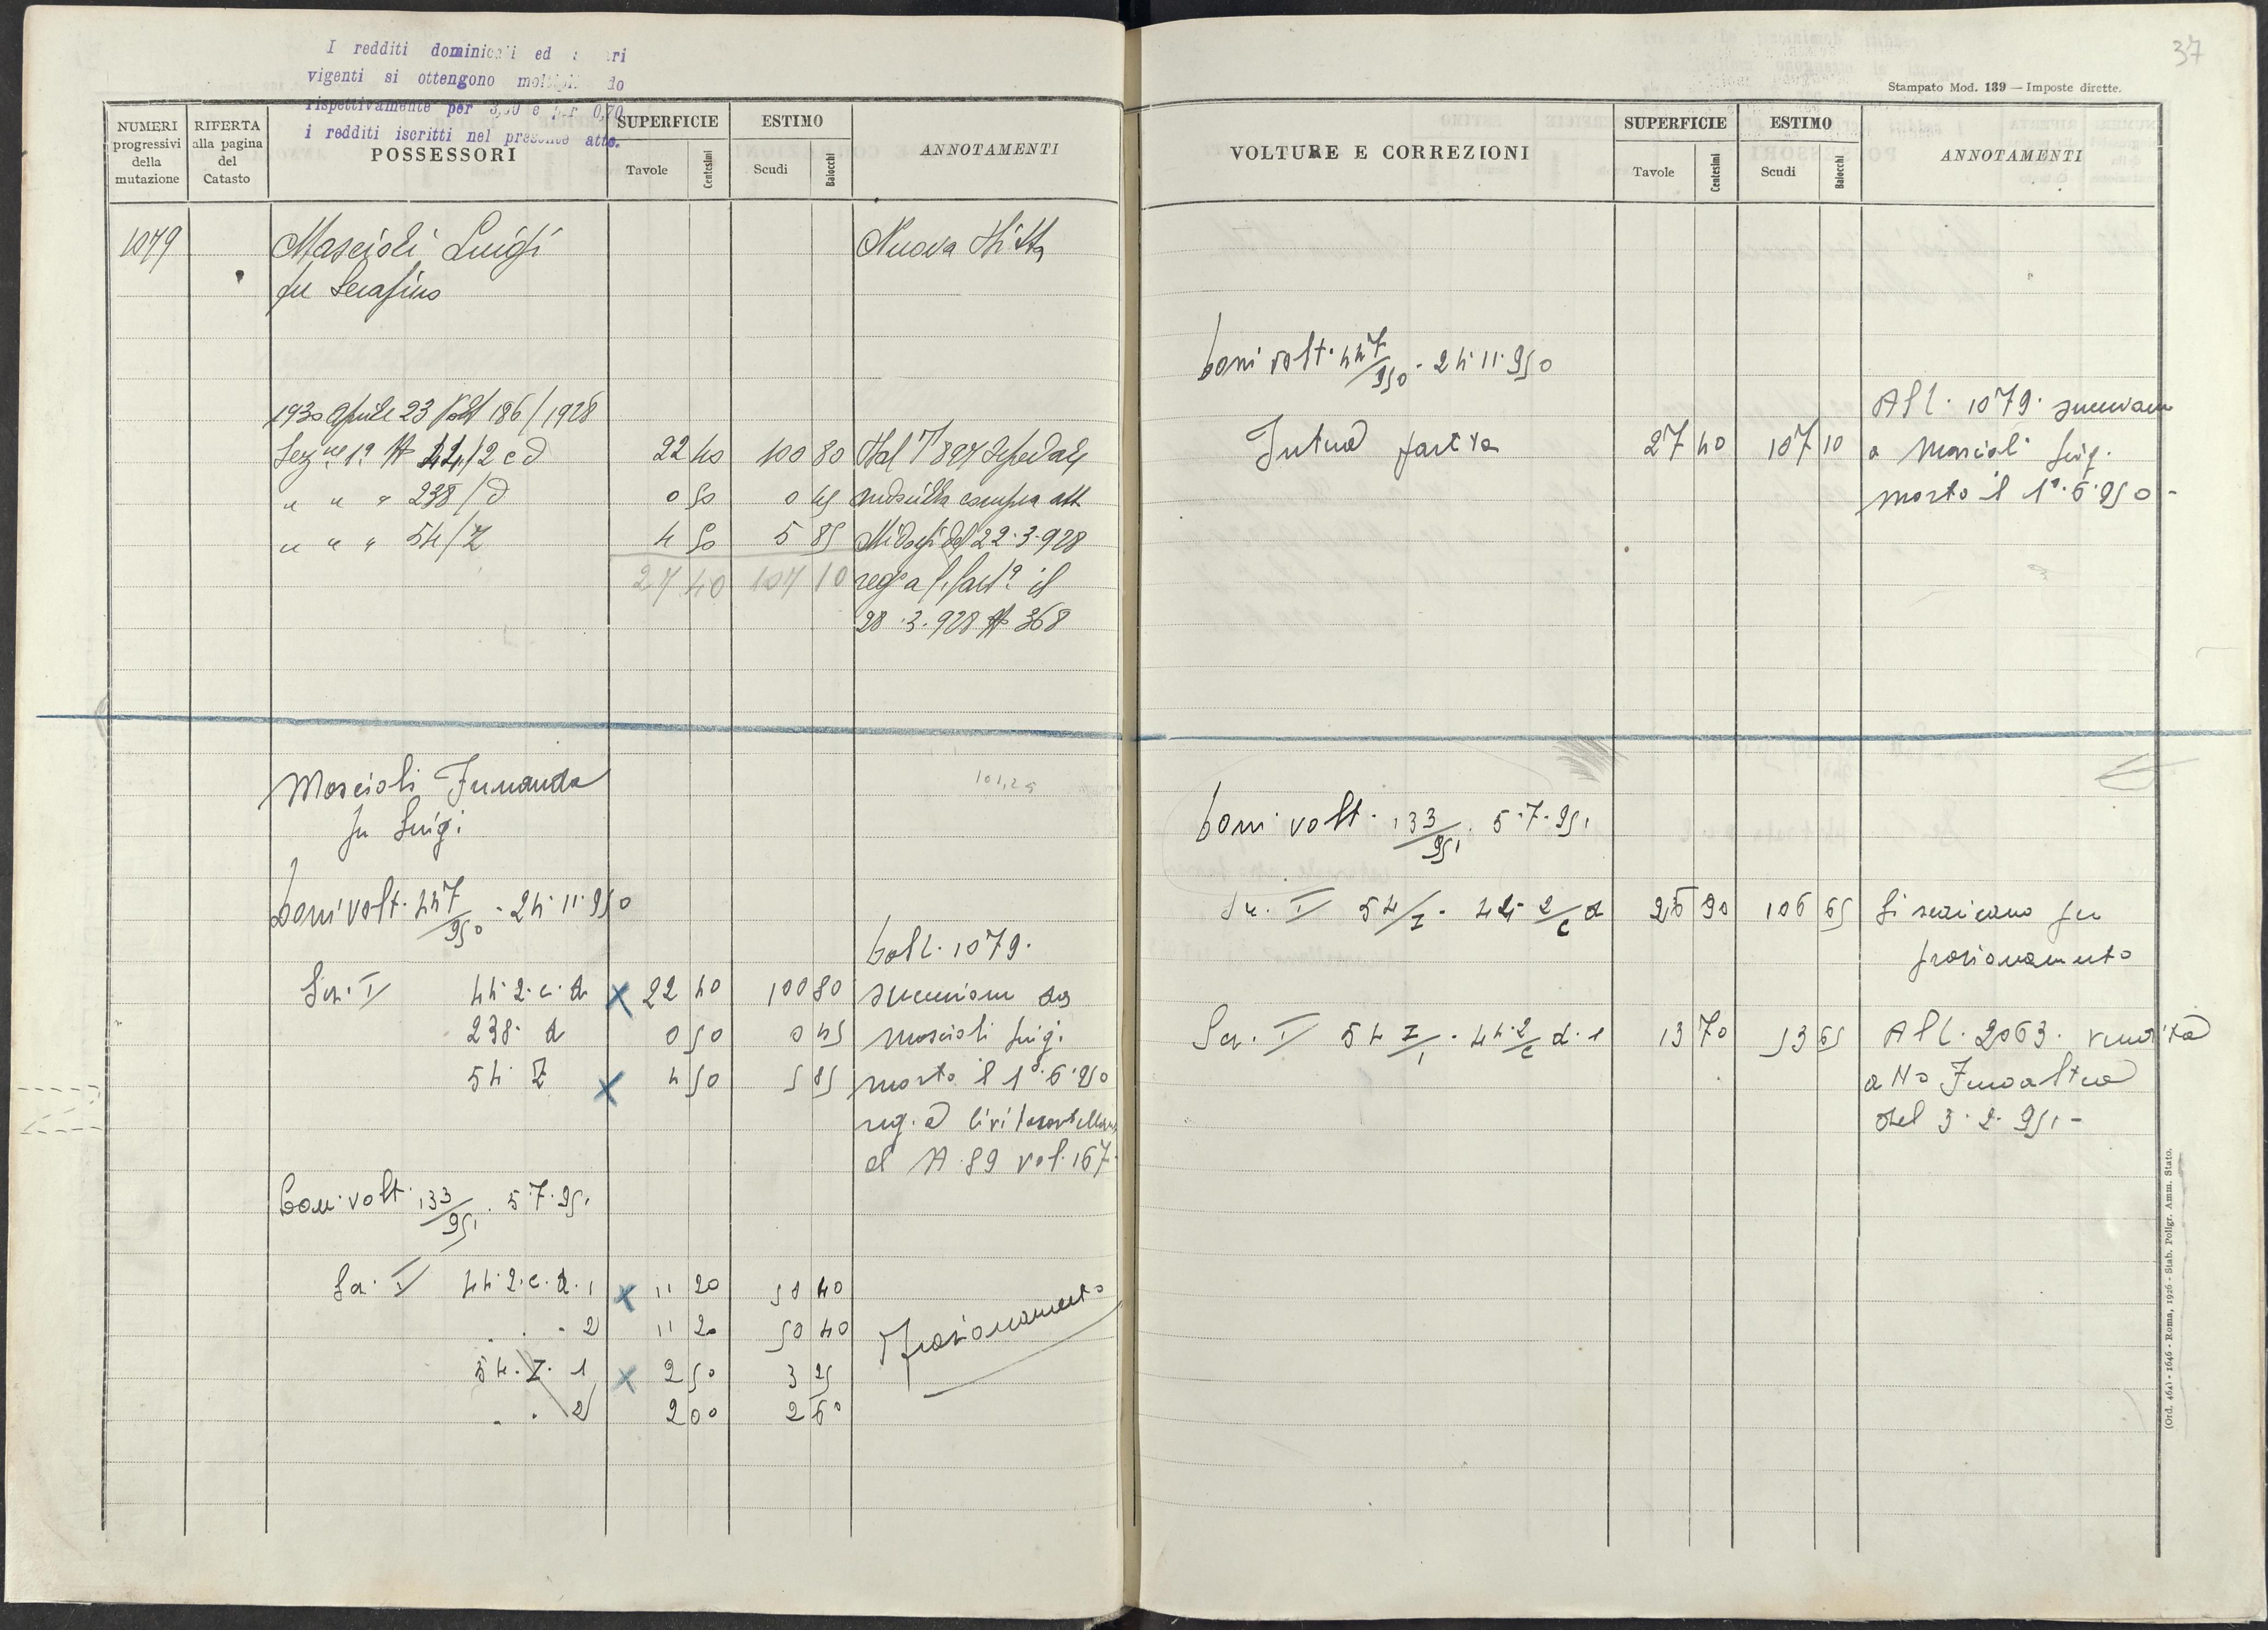 I redditi dominicali ed ri
vigenti si ottengono do
rispettivamente per 3,00 e per 0,70
i redditi iscritti nel presente atto.
NUMERI progressivi della mutazione
RIFERTA alla pagina del Catasto
POSSESSORI
SUPERFICIE
Tavole Centesimi
ESTIMO
Scudi Baiocchi
ANNOTAMENTI
1079 Mascioli Luigi Nuova Ditta
fu Serafino
1930 Aprile 23 Volt 186/1928
Sezne 1a N 44/2 c d 22 40 100 80 Dal T 897
" " " 238/d 0 50 0 45 compra att
" " " 54/Z 4 50 5 85 del 22.3.928
27 40 107 10 rega a il
28.3.928 N 368
Mascioli Fernanda 101,25
fu Luigi
Con volt. 447/950 - 24.11.950
Dall. 1079.
Sez. I 44.2.c.d x 22 40 100 80 successione da
238. d 0 50 0 45 Mascioli Luigi
54. Z x 4 50 5 85 morto il 1°.6.950
reg. a Civitacastellana
al N. 89 vol. 167.
Con volt. 133/951. 5.7.951
Sez. I 44.2.c.d.1 x 11 20 50 40
. . . 2 11 20 50 40 Frazionamento
54. Z. 1 x 2 50 3 25
. . 2 2 00 2 60
37
Stampato Mod. 139 — Imposte dirette.
VOLTURE E CORREZIONI
SUPERFICIE
Tavole Centesimi
ESTIMO
Scudi Baiocchi
ANNOTAMENTI
Con volt. 447/950 - 24.11.950
Al l. 1079. succession
Intera partita 27 40 107 10 a Mascioli Luig.
morto il 1°.6.950 -
Con volt. 133/951. 5.7.951
Sez. I 54/Z - 44 2/c d 26 90 106 65 Si scaricano per
frazionamento
Sez. I 54 Z/1 - 44.2/c d.1 13 70 53 65 Al l. 2063. vendita
a No
del 3.2.951 -
(Ord. 464) - 1646 - Roma, 1926 - Stab. Poligr. Amm. Stato.